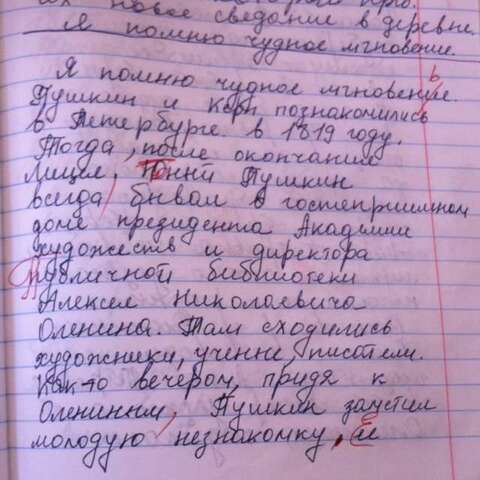 новое сведание в деревне.
Я помню чудное мгновение.
Я помню чудное мгновение.
Пушкин и Керн познакомились
в Петербурге в 1819 году.
Тогда, после окончание
Лицея, Юный Пушкин
всегда бывал в гостеприимном
доме президента Академии
художеств и директора
Публичной библиотеки
Алексея Николаевича
Оленина. Там сходились
художники, ученые, писатели.
Как-то вечером, придя к
Олениным, Пушкин заметил
молодую незнакомку, Её